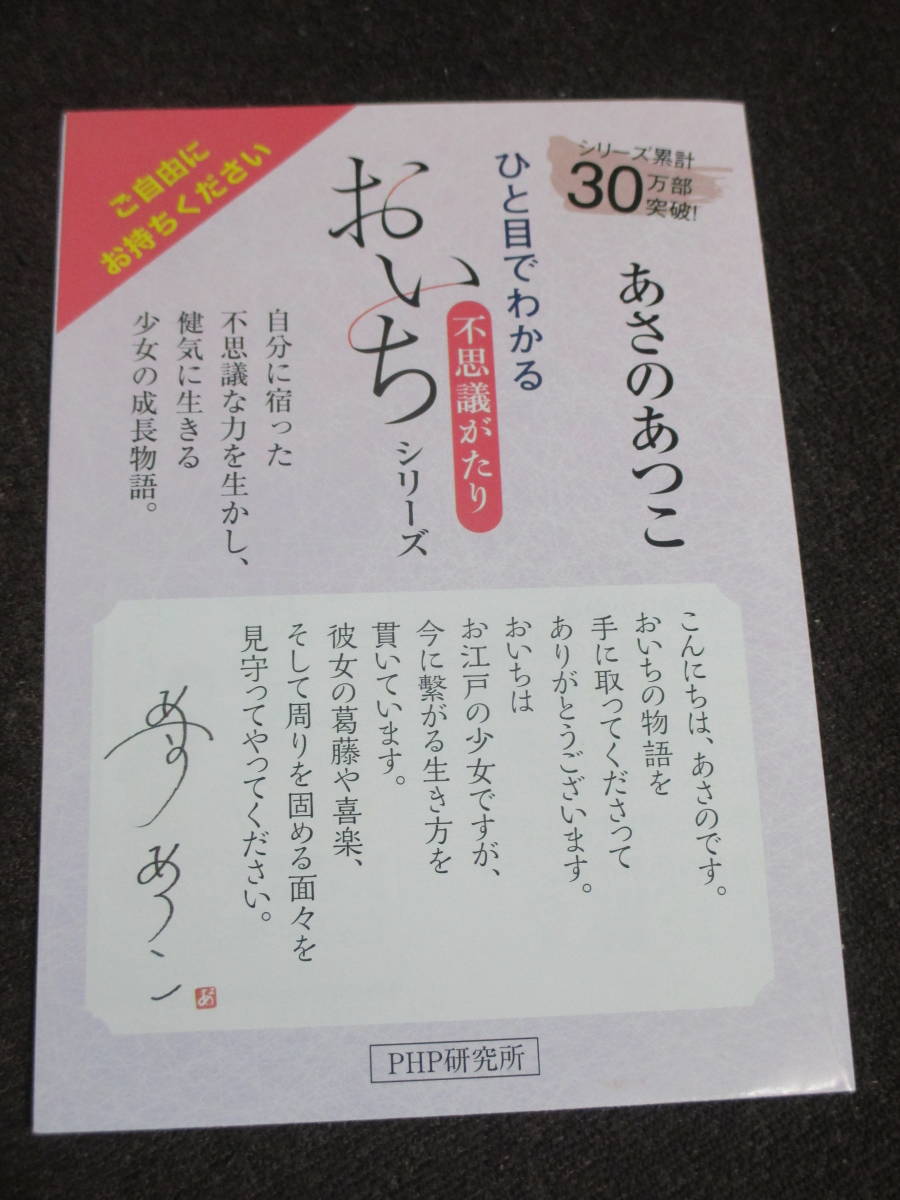 ご自由に
お持ちください
シリーズ累計
30万部
突破!
あさのあつこ
ひと目でわかる
おいち
不思議がたり
シリーズ
自分に宿った
不思議な力を生かし、
健気に生きる
少女の成長物語。
こんにちは、あさのです。
おいちの物語を
手に取ってくださって
ありがとうございます。
おいちは
お江戸の少女ですが、
今に繫がる生き方を
貫いています。
彼女の葛藤や喜楽、
そして周りを固める面々を
見守ってやってください。
あさの
あつこ
あ
PHP研究所